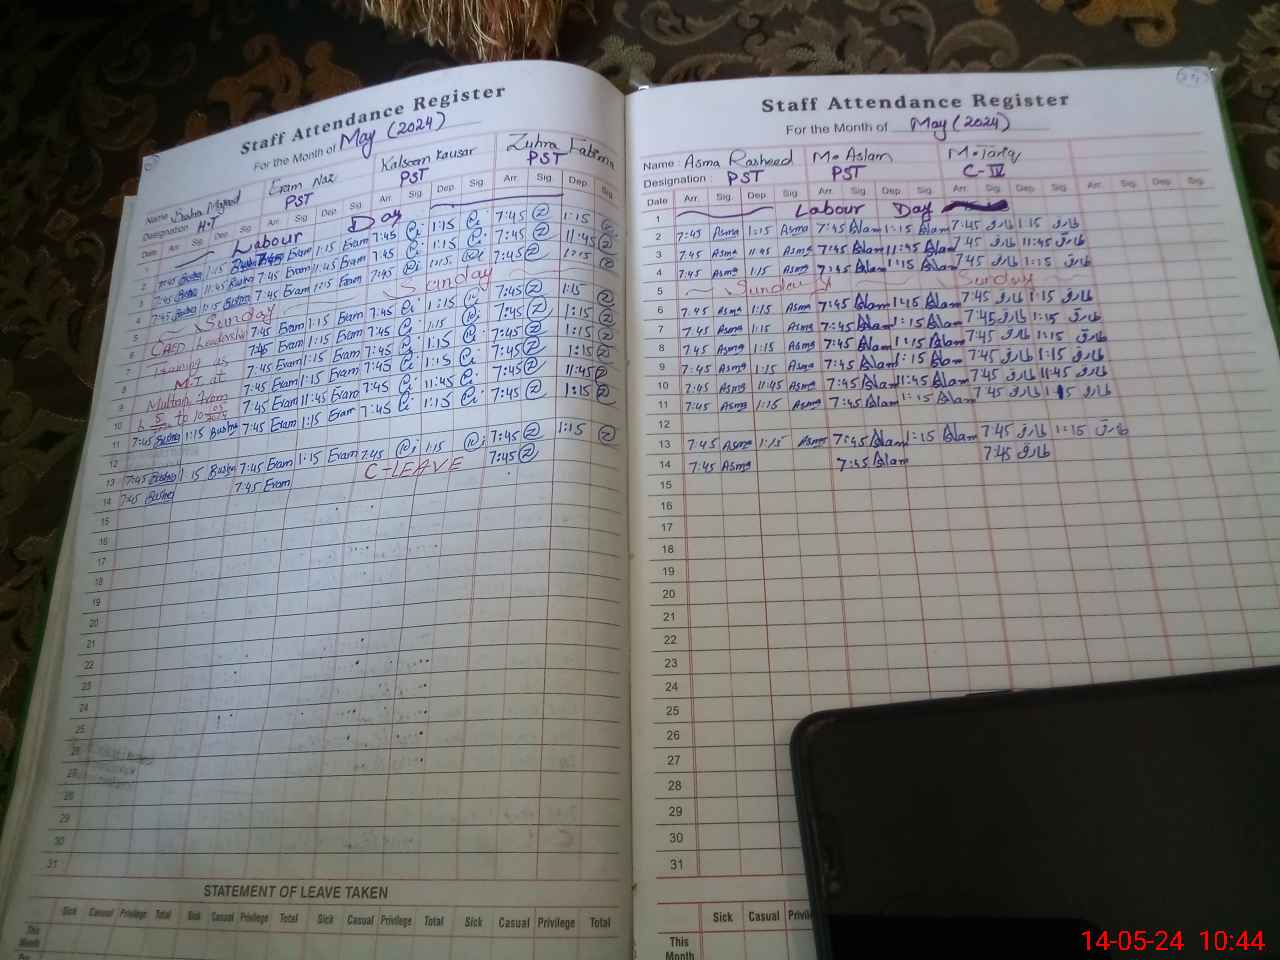 Staff Attendance Register
For the Month of May (2024)
Name Bushra Majeed Eram Naz Kalsoom Kausar Zuhra Fatima
Designation H.T PST PST PST
Date Arr. Sig. Dep. Sig. Arr. Sig. Dep. Sig. Arr. Sig. Dep. Sig. Arr. Sig. Dep. Sig.
1 Labour Day
2 7:45 Bushra 1:15 Bushra 7:45 Eram 1:15 Eram 7:45 1:15 7:45 1:15
3 7:45 Bushra 11:45 Bushra 7:45 Eram 11:45 Eram 7:45 1:15 7:45 11:45
4 7:45 Bushra 1:15 Bushra 7:45 Eram 1:15 Eram 7:45 1:15 7:45 1:15
5 Sunday Sunday
6 Leadership 7:45 Eram 1:15 Eram 7:45 1:15 7:45 1:15
7 Training as 7:45 Eram 1:15 Eram 7:45 1:15 7:45 1:15
8 M.T at 7:45 Eram 1:15 Eram 7:45 1:15 7:45 1:15
9 Multan from 7:45 Eram 1:15 Eram 7:45 1:15 7:45 1:15
10 to 7:45 Eram 11:45 Eram 7:45 11:45 7:45 11:45
11 7:45 Bushra 1:15 Bushra 7:45 Eram 1:15 Eram 7:45 1:15 7:45 1:15
12
13 7:45 Bushra 1:15 Bushra 7:45 Eram 1:15 Eram 7:45 1:15 7:45 1:15
14 7:45 Bushra 7:45 Eram C-LEAVE 7:45
15
16
17
18
19
20
21
22
23
24
25
26
27
28
29
30
31
STATEMENT OF LEAVE TAKEN
Sick Casual Privilege Total Sick Casual Privilege Total Sick Casual Privilege Total Sick Casual Privilege Total
This
Month
Staff Attendance Register
For the Month of May (2024)
Name : Asma Rasheed M. Aslam M. Tariq
Designation : PST PST C-IV
Date Arr. Sig. Dep. Sig. Arr. Sig. Dep. Sig. Arr. Sig. Dep. Sig. Arr. Sig. Dep. Sig.
1 Labour Day
2 7:45 Asma 1:15 Asma 7:45 Aslam 1:15 Aslam 7:45 طارق 1:15 طارق
3 7:45 Asma 11:45 Asma 7:45 Aslam 11:45 Aslam 7:45 طارق 11:45 طارق
4 7:45 Asma 1:15 Asma 7:45 Aslam 1:15 Aslam 7:45 طارق 1:15 طارق
5 Sunday Sunday
6 7:45 Asma 1:15 Asma 7:45 Aslam 1:15 Aslam 7:45 طارق 1:15 طارق
7 7:45 Asma 1:15 Asma 7:45 Aslam 1:15 Aslam 7:45 طارق 1:15 طارق
8 7:45 Asma 1:15 Asma 7:45 Aslam 1:15 Aslam 7:45 طارق 1:15 طارق
9 7:45 Asma 1:15 Asma 7:45 Aslam 1:15 Aslam 7:45 طارق 1:15 طارق
10 7:45 Asma 11:45 Asma 7:45 Aslam 11:45 Aslam 7:45 طارق 11:45 طارق
11 7:45 Asma 1:15 Asma 7:45 Aslam 1:15 Aslam 7:45 طارق 1:15 طارق
12
13 7:45 Asma 1:15 Asma 7:45 Aslam 1:15 Aslam 7:45 طارق 1:15 طارق
14 7:45 Asma 7:45 Aslam 7:45 طارق
15
16
17
18
19
20
21
22
23
24
25
26
27
28
29
30
31
Sick Casual
This
Month
14-05-24 10:44